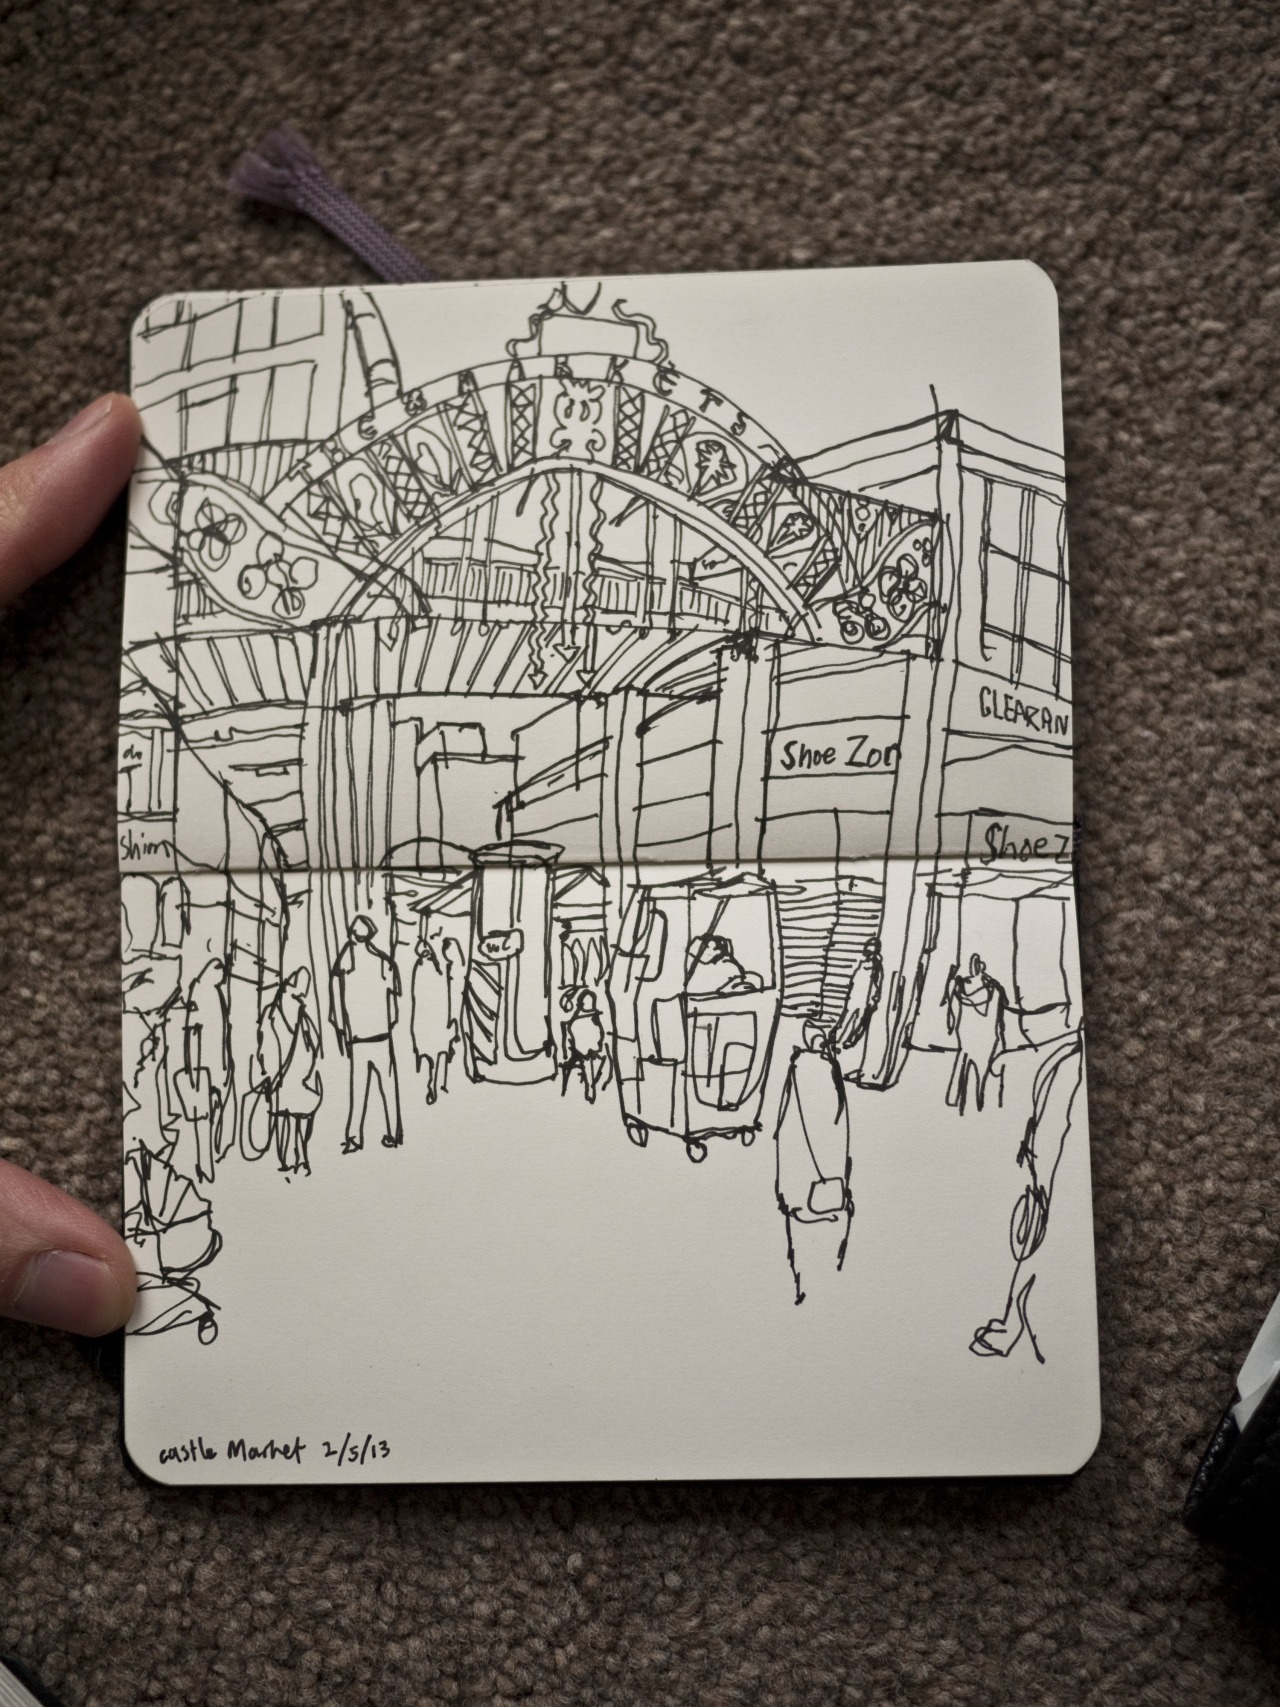 THE MARKETS
CLEARAN
Shoe Zon
Shoe Z
WC
castle Market 2/5/13